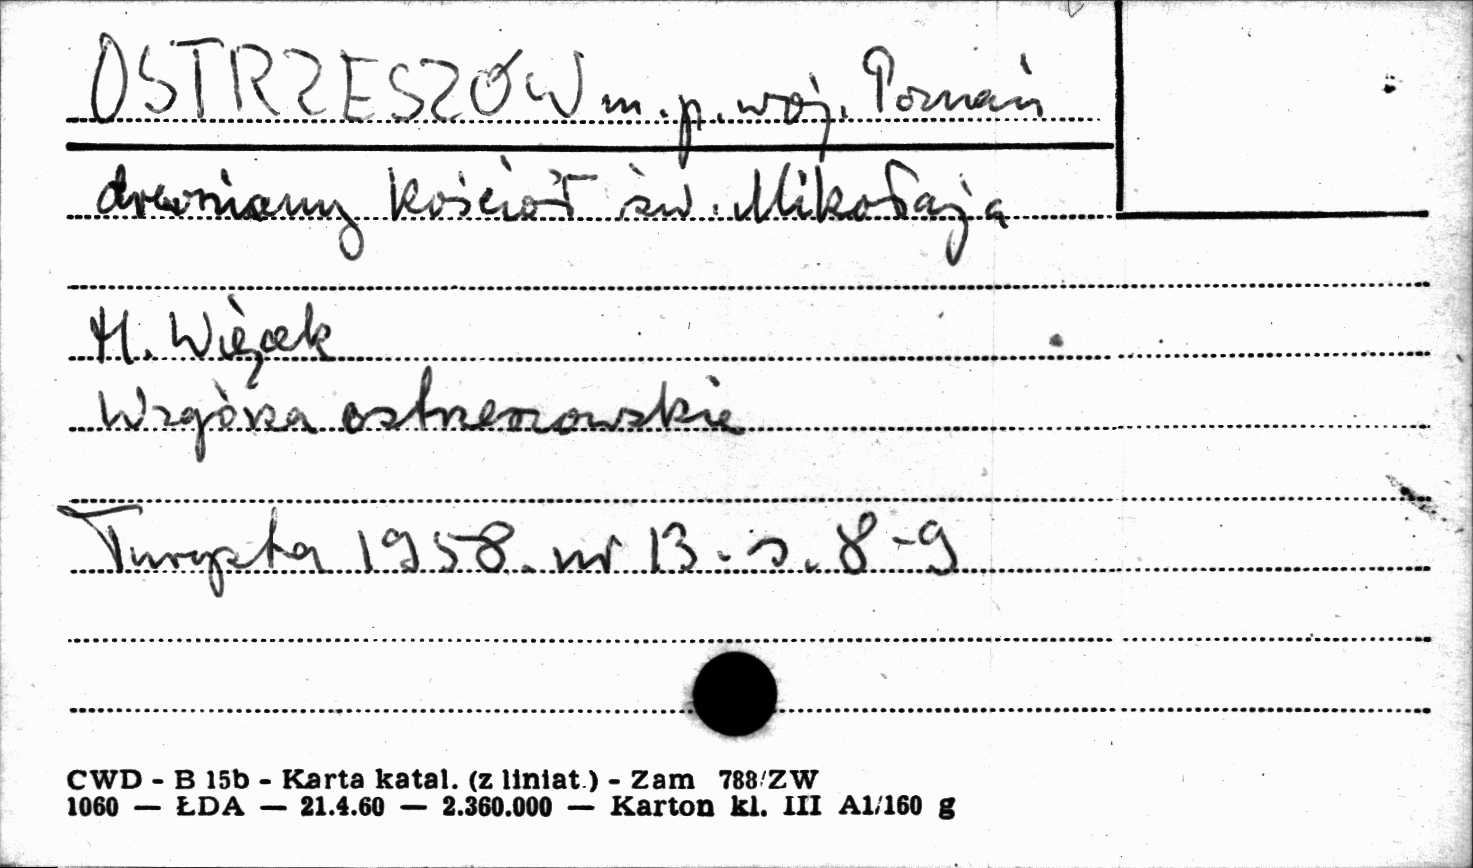 OSTRZESZÓW m. p. woj. Poznań
drewniany kościół św. Mikołaja
H. Więzek
Wzgórza ostrzeszowskie
Turysta 1958. nr 13. s. 8-9
CWD - B 15b - Karta katal. (z liniat.) - Zam 788/ZW
1060 — ŁDA — 21.4.60 — 2.360.000 — Karton kl. III A1/160 g